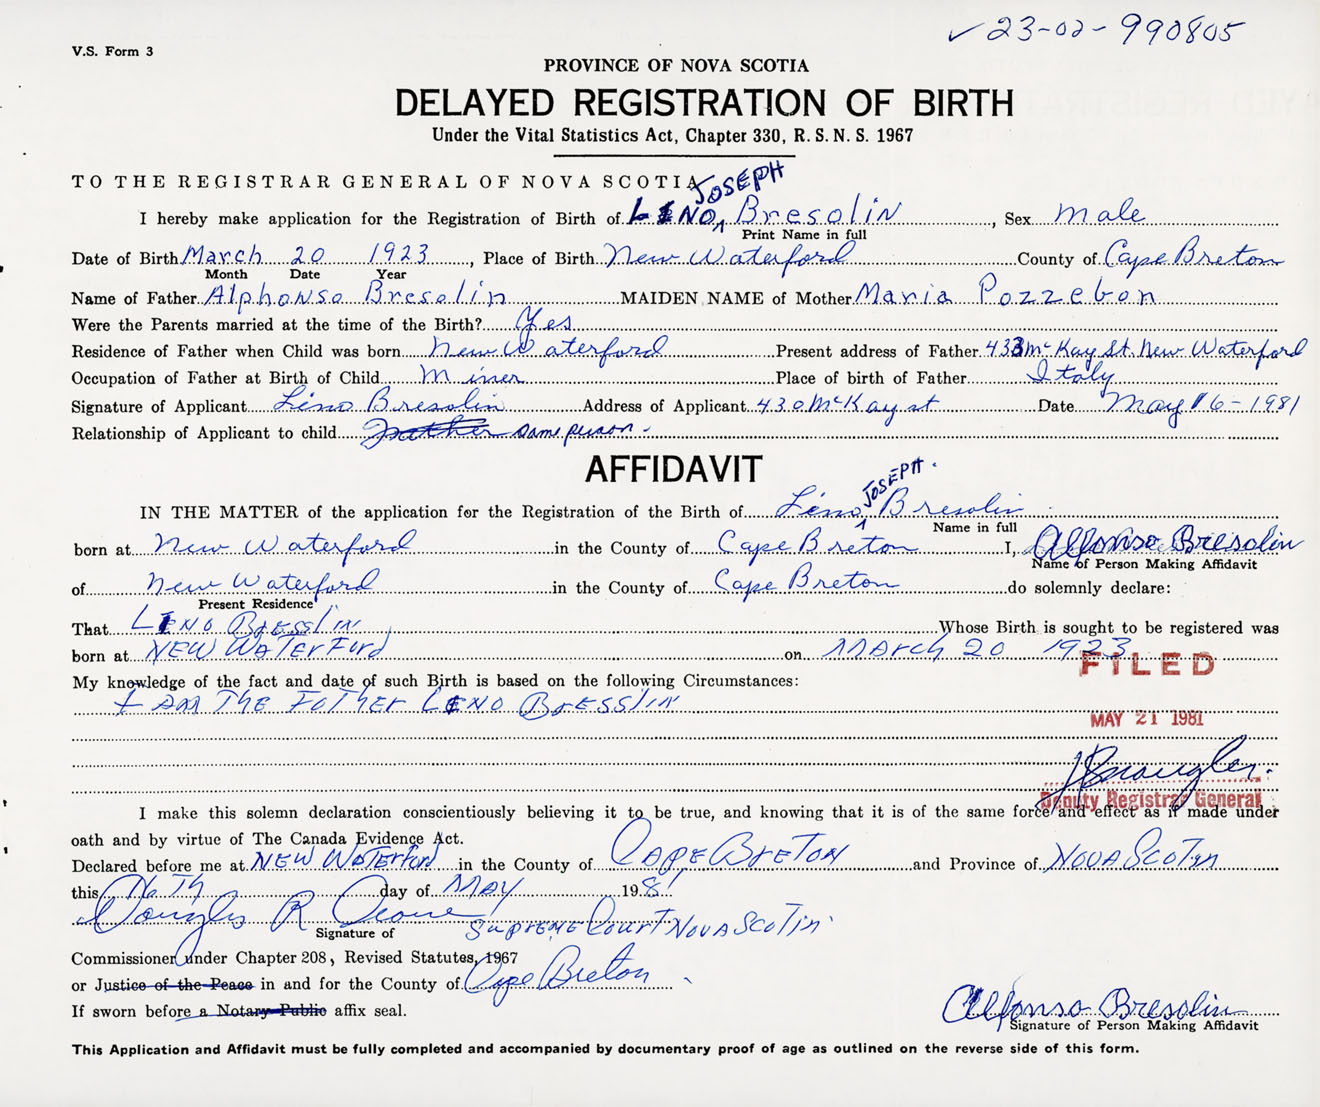 ✓ 23-02-990805
V.S. Form 3
PROVINCE OF NOVA SCOTIA
DELAYED REGISTRATION OF BIRTH
Under the Vital Statistics Act, Chapter 330, R.S.N.S. 1967
TO THE REGISTRAR GENERAL OF NOVA SCOTIA
JOSEPH
I hereby make application for the Registration of Birth of LENO, Bresolin, Sex male
Print Name in full
Date of Birth March 20 1923, Place of Birth New Waterford County of Cape Breton
Month Date Year
Name of Father Alphonso Bresolin MAIDEN NAME of Mother Maria Pozzebon
Were the Parents married at the time of the Birth? Yes
Residence of Father when Child was born New Waterford Present address of Father 433 McKay St. New Waterford
Occupation of Father at Birth of Child Miner Place of birth of Father Italy
Signature of Applicant Leno Bresolin Address of Applicant 430 McKay st Date May 16-1981
Relationship of Applicant to child same person.
AFFIDAVIT
JOSEPH.
IN THE MATTER of the application for the Registration of the Birth of Leno, Bresolin
Name in full
born at New Waterford in the County of Cape Breton I, Alfonso Bresolin
Name of Person Making Affidavit
of New Waterford in the County of Cape Breton do solemnly declare:
Present Residence
That LENO BRESSLIN Whose Birth is sought to be registered was
born at NEW WATERFORD on MARCH 20 1923
FILED
My knowledge of the fact and date of such Birth is based on the following Circumstances:
I AM THE FATHER LENO BRESSLIN
MAY 21 1981
Deputy Registrar General
I make this solemn declaration conscientiously believing it to be true, and knowing that it is of the same force and effect as if made under
oath and by virtue of The Canada Evidence Act.
Declared before me at NEW WATERFORD in the County of CAPE BRETON and Province of NOVA SCOTIA
this 16 TH day of MAY 1981
Douglas R SUPREME COURT NOVA SCOTIA
Signature of
Commissioner under Chapter 208, Revised Statutes, 1967
or Justice of the Peace in and for the County of Cape Breton
If sworn before a Notary Public affix seal.
Alfonso Bresolin
Signature of Person Making Affidavit
This Application and Affidavit must be fully completed and accompanied by documentary proof of age as outlined on the reverse side of this form.